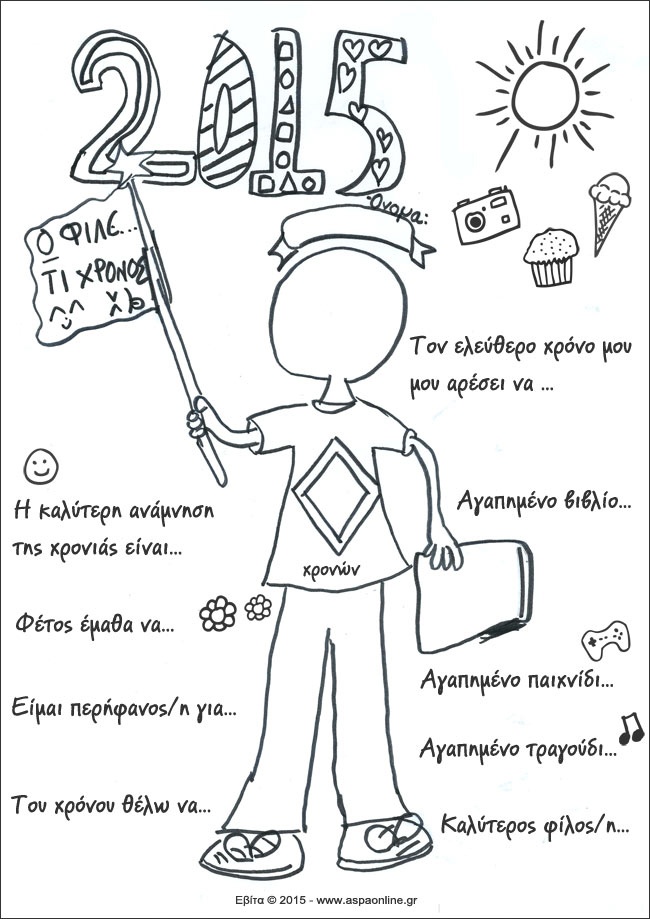 2015
Όνομα:
Ο ΦΙΛΕ...
ΤΙ ΧΡΟΝΟΣ
Τον ελεύθερο χρόνο μου
μου αρέσει να ...
Η καλύτερη ανάμνηση
της χρονιάς είναι...
Αγαπημένο βιβλίο...
χρονών
Φέτος έμαθα να...
Αγαπημένο παιχνίδι...
Είμαι περήφανος/η για...
Αγαπημένο τραγούδι...
Του χρόνου θέλω να...
Καλύτερος φίλος/η...
Εβίτα © 2015 - www.aspaonline.gr